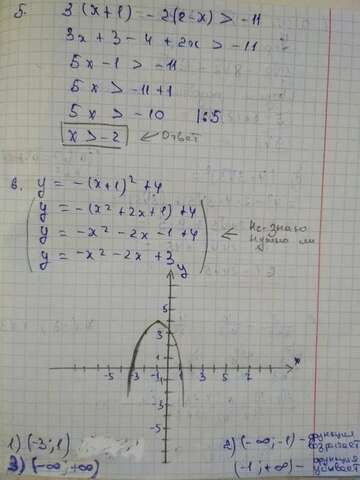 5. 3(x+1) - 2(2-x) > -11
3x + 3 - 4 + 2x > -11
5x - 1 > -11
5x > -11+1
5x > -10 |:5
x > -2 ← Ответ
6. y = -(x+1)² + 4
y = -(x² + 2x + 1) + 4
y = -x² - 2x - 1 + 4 ← Не знаю нужно ли
y = -x² - 2x + 3
y
5
3
1
-5 -3 -1 1 3 5
-1
-3
-5
1) (-3; 1)
2) (-∞; -1) - функция возрастает
3) (-∞; +∞)
(-1; +∞) - функция убывает